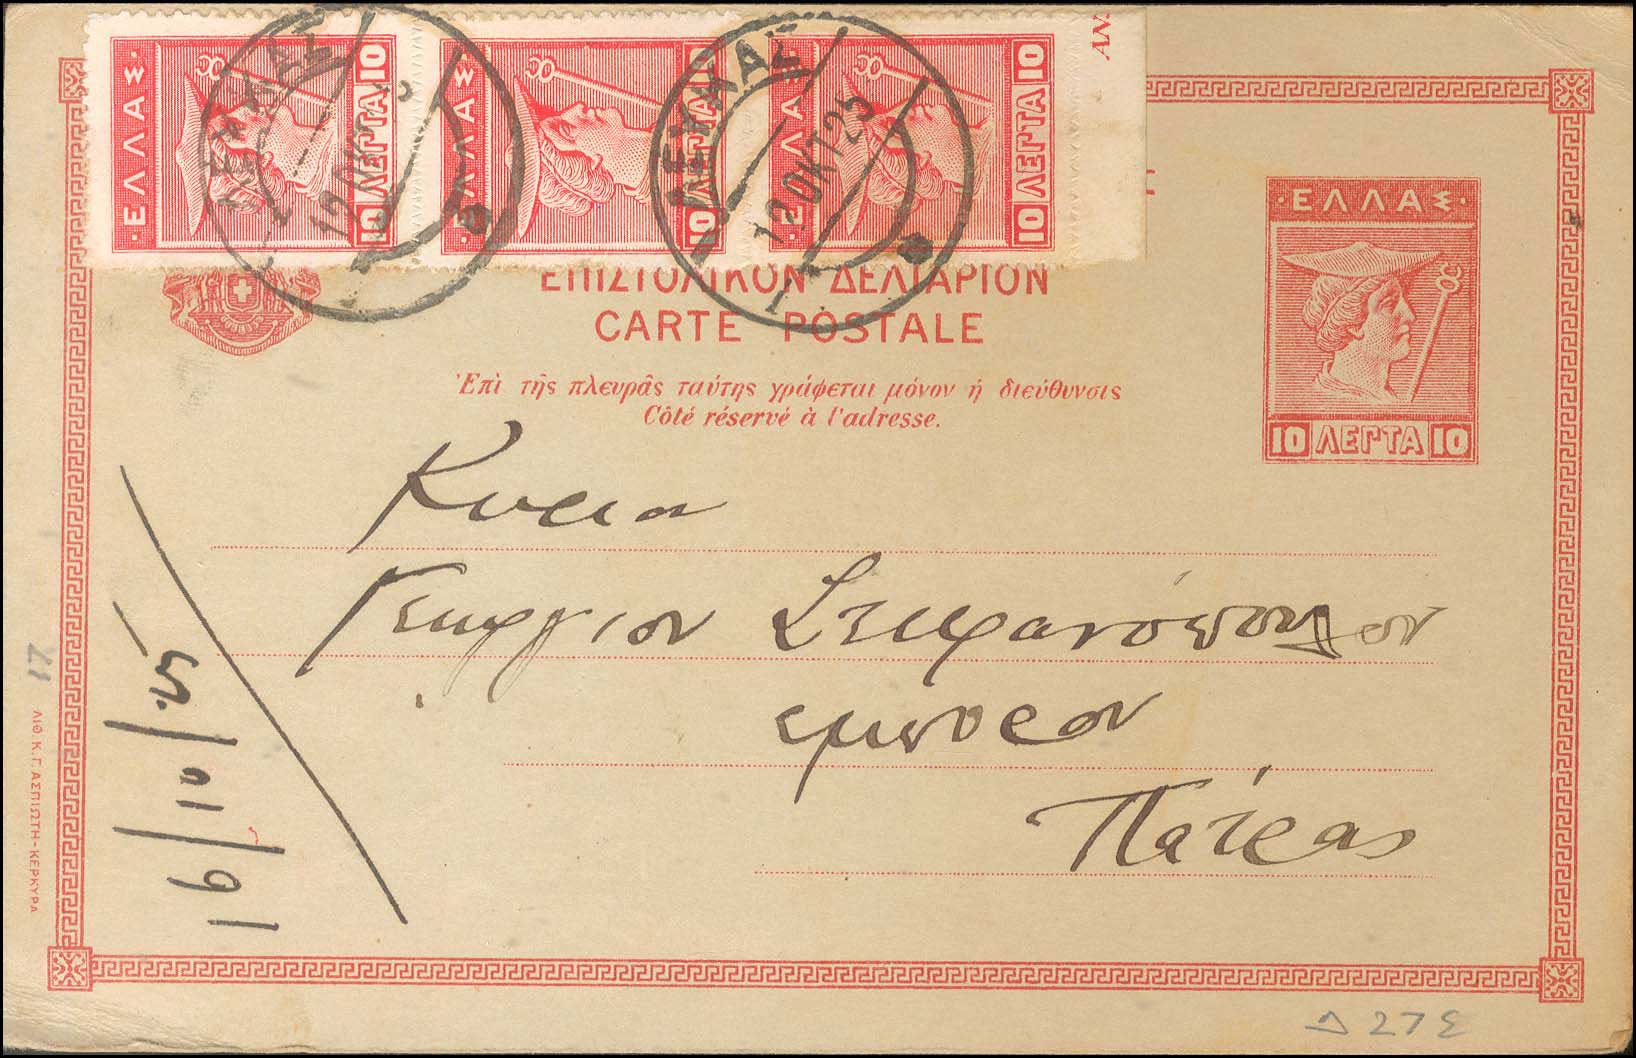 ΕΛΛΑΣ
10 ΛΕΠΤΑ 10
ΕΛΛΑΣ
10 ΛΕΠΤΑ 10
ΕΛΛΑΣ
10 ΛΕΠΤΑ 10
ΑΝ
ΛΕΥΚΑΣ
12 ΟΚΤ
ΛΕΥΚΑΣ
12 ΟΚΤ 25
1
ΕΛΛΑΣ
10 ΛΕΠΤΑ 10
ΕΠΙΣΤΟΛΙΚΟΝ ΔΕΛΤΑΡΙΟΝ
CARTE POSTALE
Ἐπὶ τῆς πλευρᾶς ταύτης γράφεται μόνον ἡ διεύθυνσις
Côté réservé à l'adresse.
Κυριον
Γεωργιον Στεφανόπουλον
εμπορον
Πάτρας
ΛΙΘ. Κ. Γ. ΑΣΠΙΩΤΗ - ΚΕΡΚΥΡΑ
Δ 27 Σ